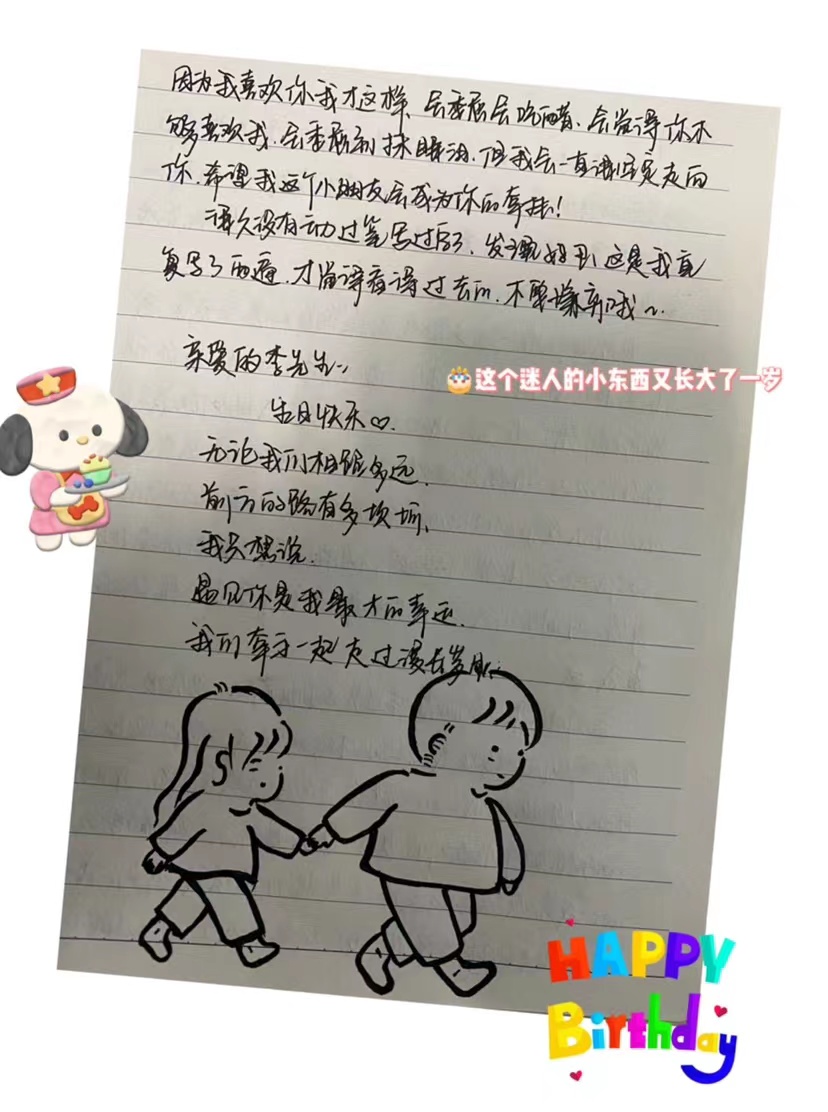 因为我喜欢你我才这样、会委屈会吃醋、会觉得你不
够喜欢我、会委屈到抹眼泪、但我会一直满怀真走向
你、希望我这个小朋友会成为你的牵挂!
很久没有动过笔写过字了、发现好
复写了两遍、才觉得看得过去的、不要嫌弃哦~、
亲爱的李先生:
生日快乐♡.
无论我们相距多远、
前方的路有多坎坷、
我只想说、
遇见你是我最大的幸运、
我们牵手一起走过漫长岁月、
这个迷人的小东西又长大了一岁
HAPPY
Birthday